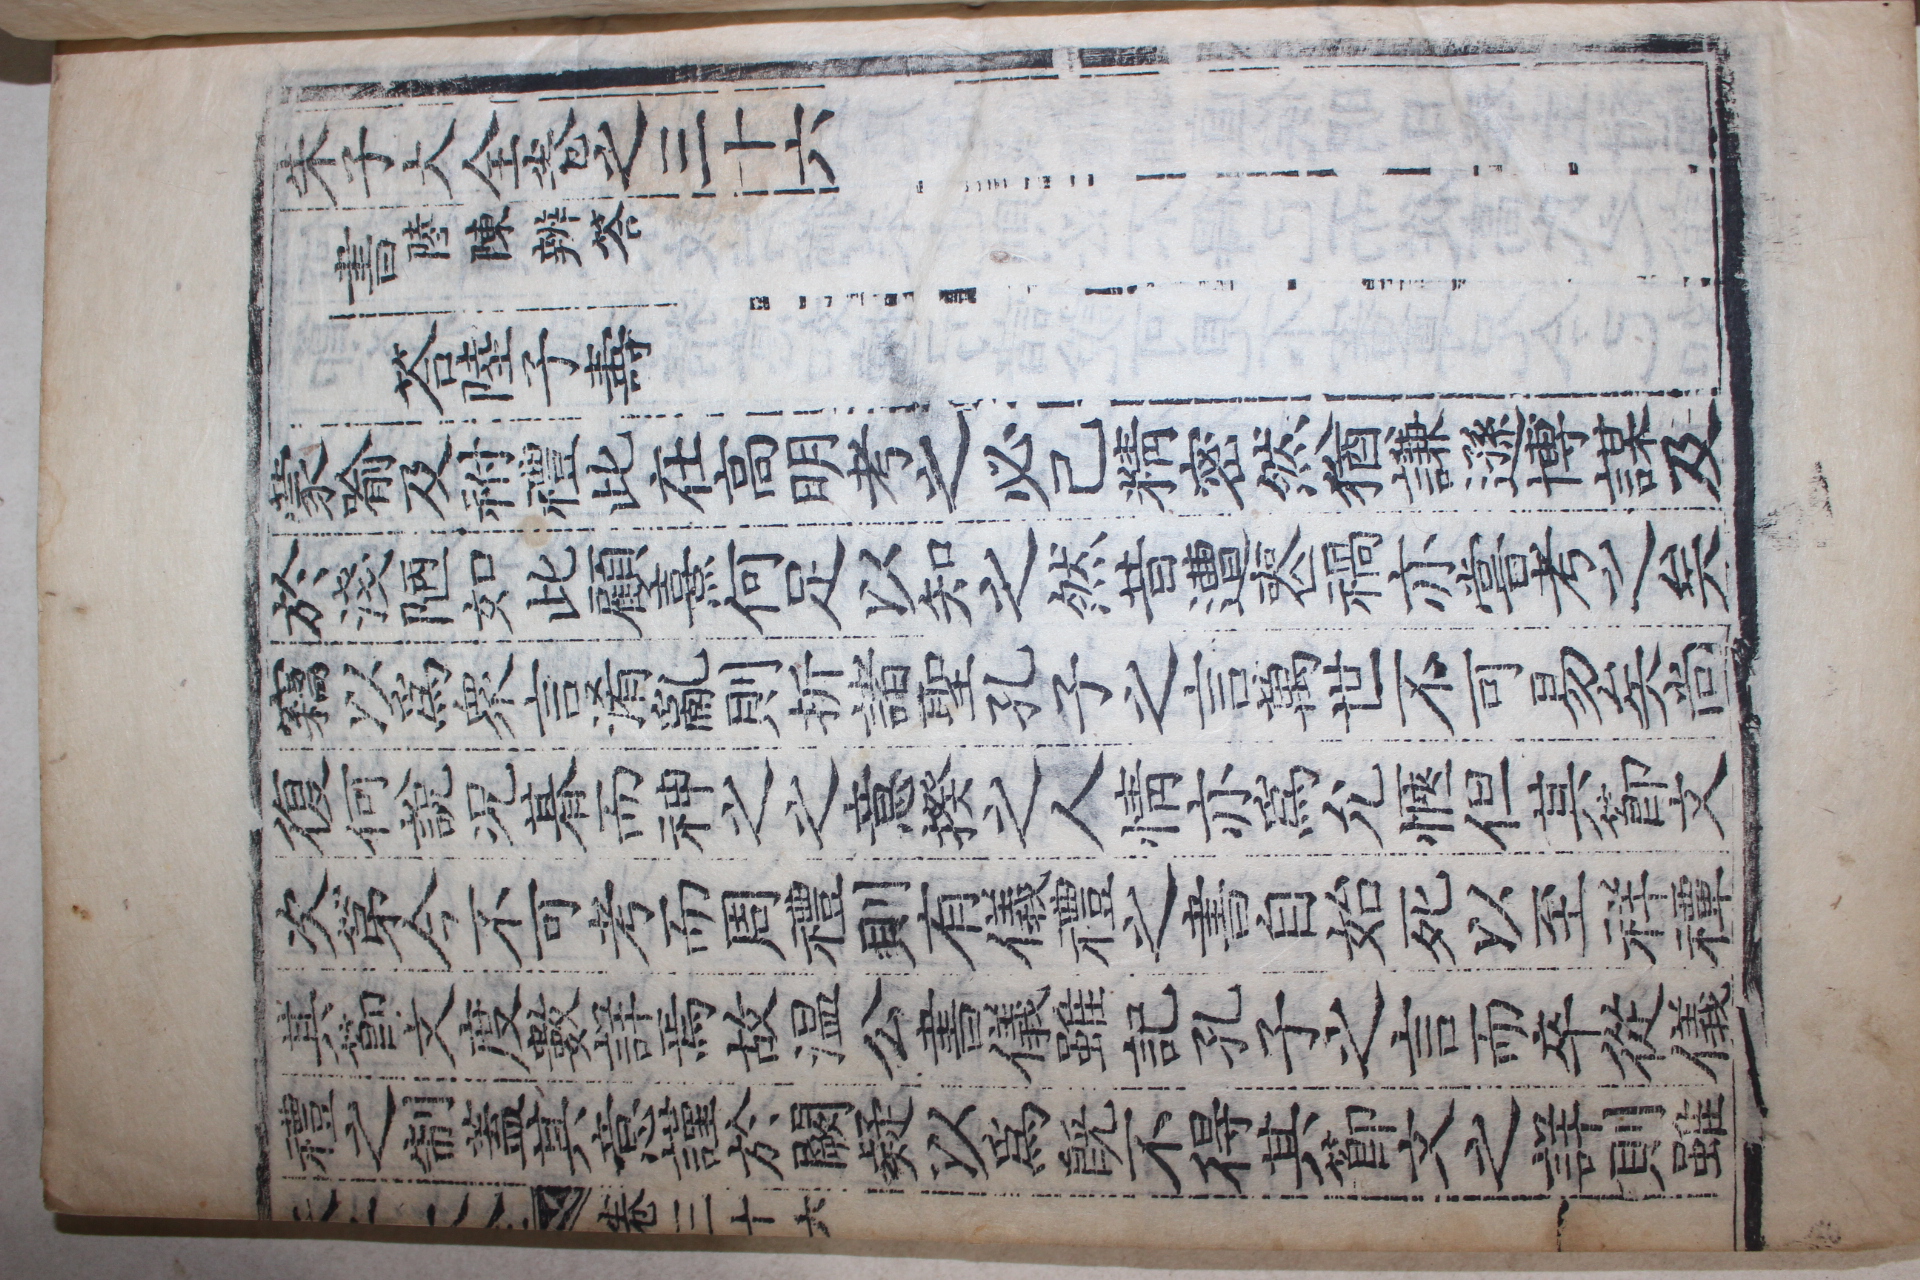 朱子大全卷之三十六
書 陸陳辨答
答陸子壽
蒙喻及祔禮此在高明考之必已精密然猶謙遜博謀及
於淺陋如此顧熹何足以知之然昔遭喪禍亦嘗考之矣
竊以爲衆言淆亂則折諸聖孔子之言萬世不可易矣尚
復何說況朞而神之之意揆之人情亦爲允愜但其節文
次第今不可考而周禮則有儀禮之書自始死以至祥禫
其節文度數詳焉故温公書儀雖記孔子之言而卒從儀
禮之制蓋其意謹於闕疑以爲旣不得其節文之詳則雖
卷三十六